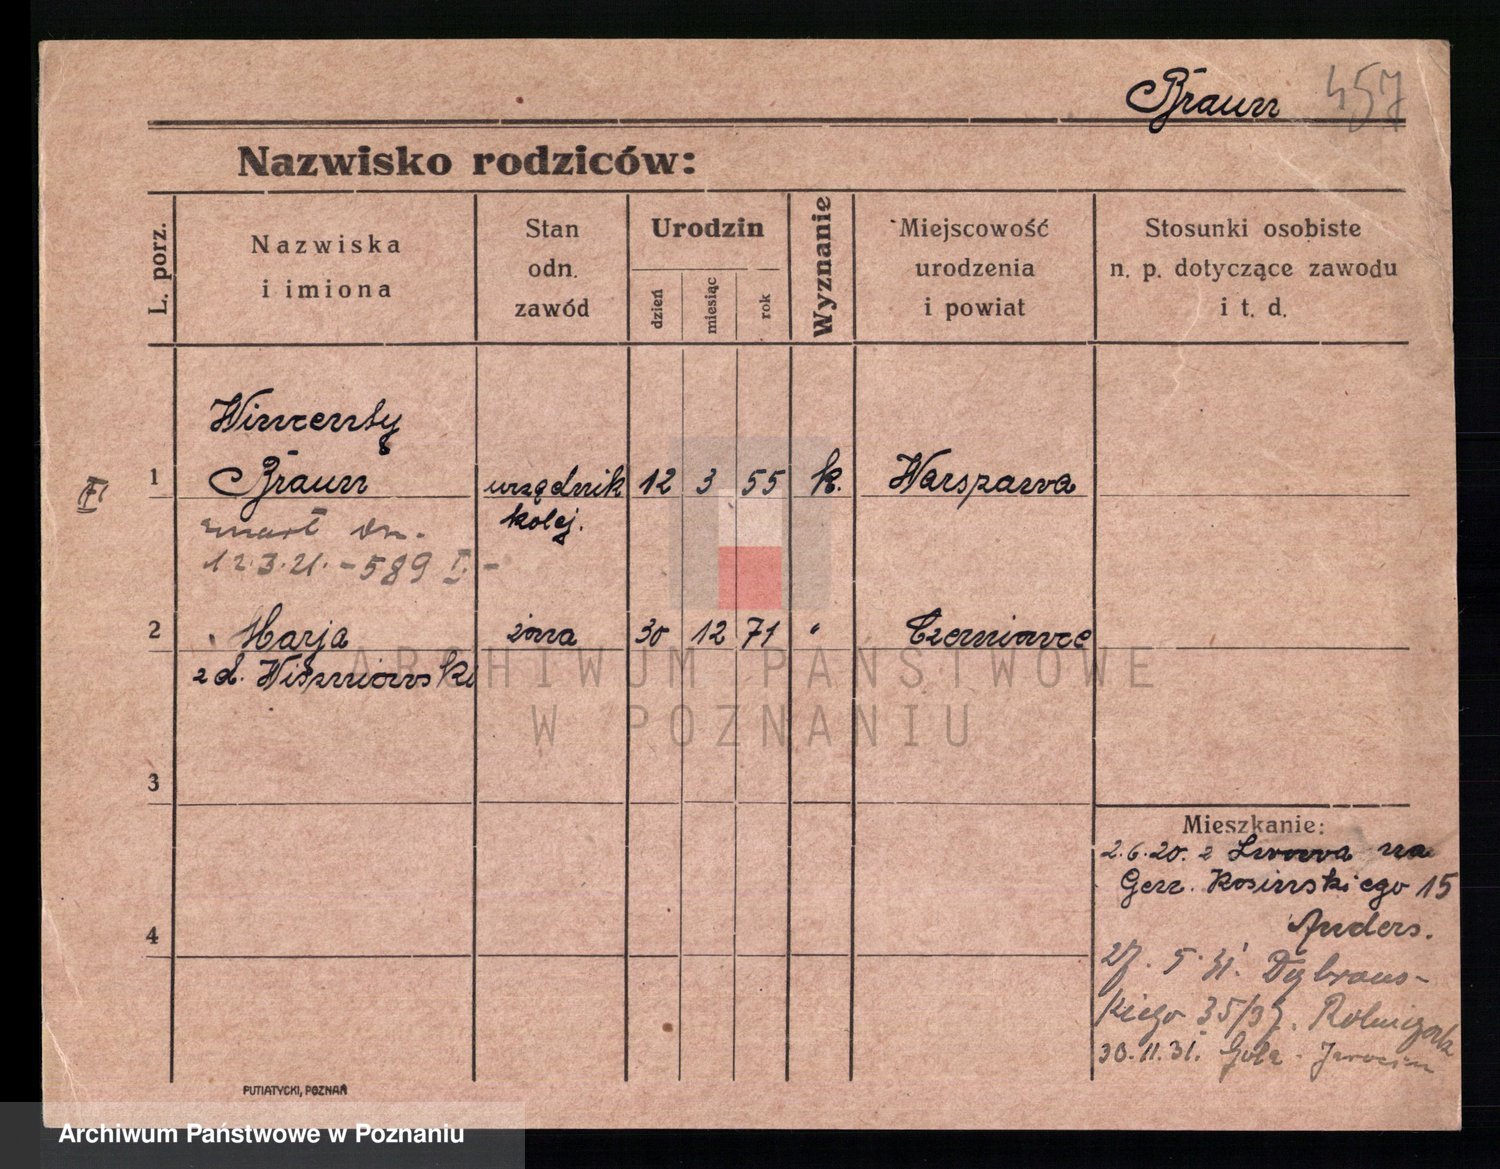 Braun 457
Nazwisko rodziców:
L. porz.
Nazwiska
i imiona
Stan
odn.
zawód
Urodzin
dzień
miesiąc
rok
Wyznanie
Miejscowość
urodzenia
i powiat
Stosunki osobiste
n. p. dotyczące zawodu
i t. d.
Wincenty
1 Braun urzędnik 12 3 55 k. Warszawa
kolej.
zmarł dn.
12.3.21. - 589 I. -
2 Marja żona 30 12 71 " Czerniowce
z d. Wiszniowski
3
Mieszkanie:
2.6.20. z Lwowa na
Gen. Kosinskiego 15
4
Anders.
27. 5. 31. Dąbrows-
kiego 35/37. Rolniczak
30.11.31. Gola - Jarocin
PUTIATYCKI, POZNAŃ
ARCHIWUM PAŃSTWOWE
W POZNANIU
Archiwum Państwowe w Poznaniu